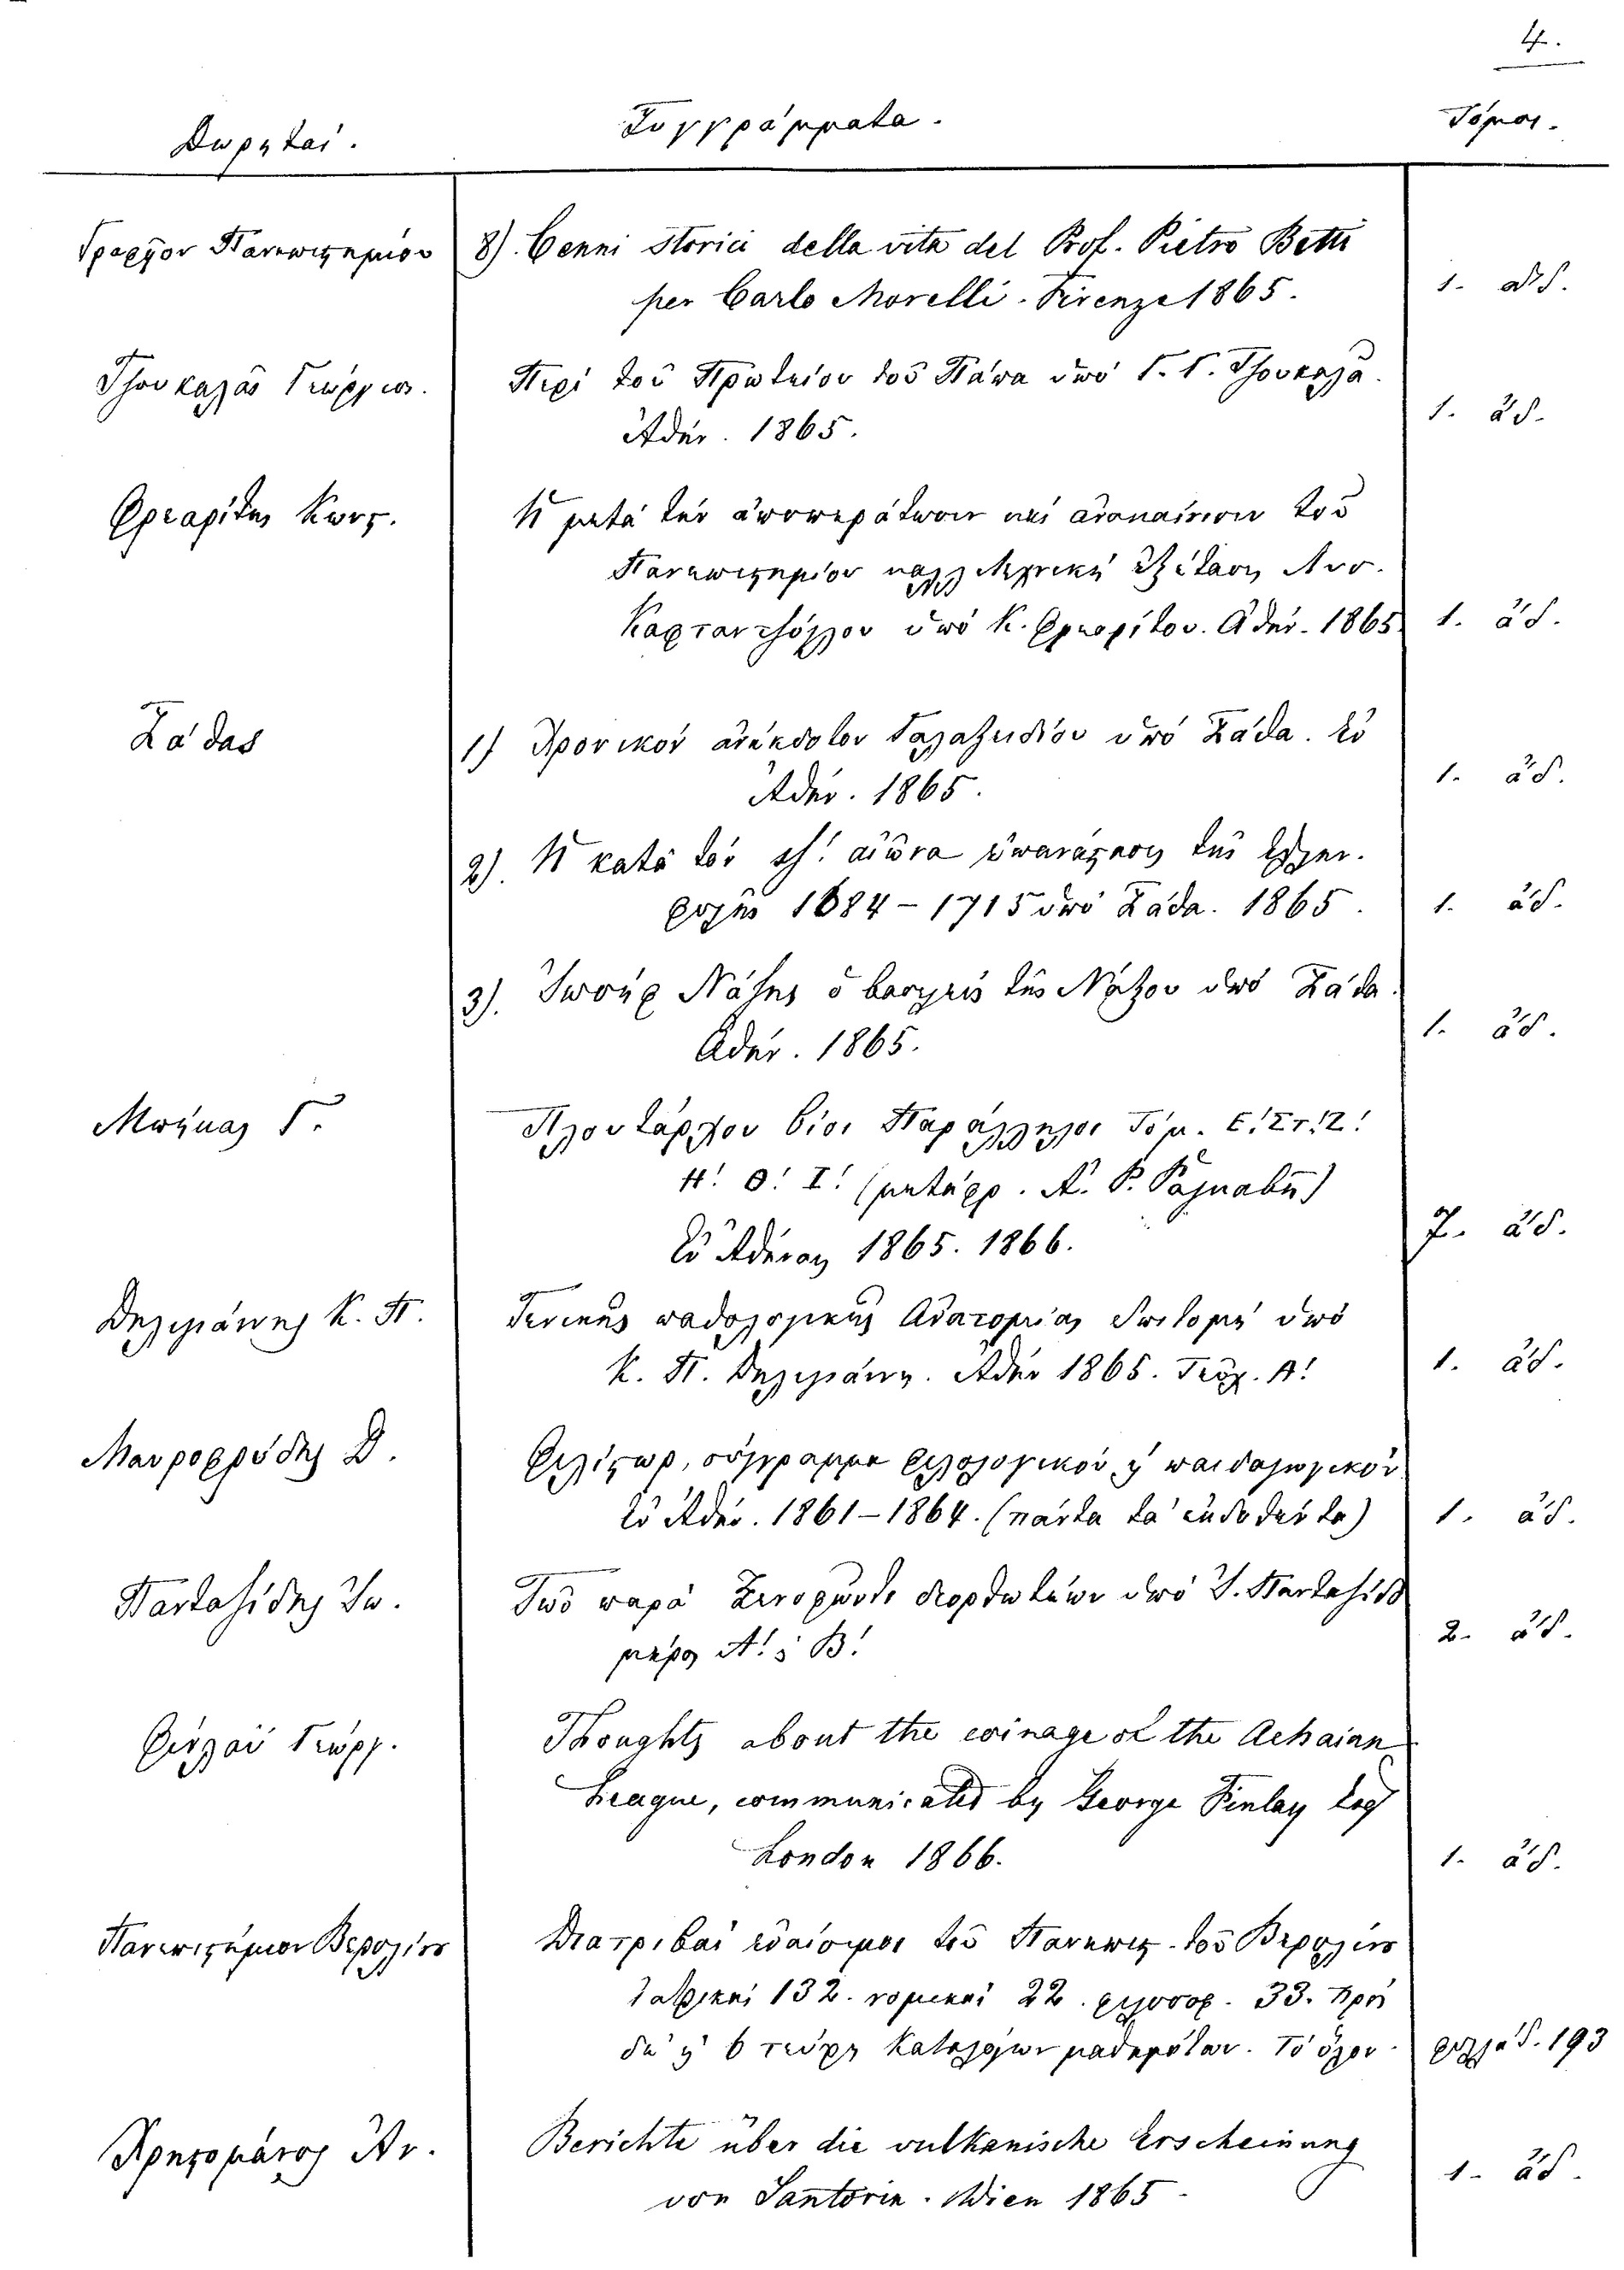 4.
Δωρηταί. Συγγράμματα. Τόμοι.
Πανεπιστήμιον 8). Cenni Storici della vita del Prof. Pietro Betti
per Carlo Morelli. Firenze 1865. 1. ἄδ.
Τζουκαλᾶς Γεώργιος. Περὶ τοῦ Πρωτείου τοῦ Πάπα ὑπὸ Γ. Γ. Τζουκαλᾶ.
Ἀθῆν. 1865. 1. ἄδ.
Φρεαρίτης Κωνς. Ἡ μετὰ τὴν
Πανεπιστημίου Ἀντ.
ὑπὸ Κ. Φρεαρίτου. Ἀθῆν. 1865 1. ἄδ.
Σάθας 1) Χρονικὸν ἀνέκδοτον Γαλαξειδίου ὑπὸ Σάθα. ἐν
Ἀθήν. 1865. 1. ἄδ.
2). Ἡ κατὰ τὸν ιζ! αἰῶνα ἐπανάστασις τῆς Ἑλλην.
φυλῆς 1684-1715 ὑπὸ Σάθα. 1865. 1. ἄδ.
3). Ἰωσὴφ Νάζης ὁ βασιλεὺς τῆς Νάξου ὑπὸ Σάθα.
Ἀθήν. 1865. 1. ἄδ.
Μπήκας Γ. Πλουτάρχου βίοι Παράλληλοι Τόμ. Ε! ΣΤ! Ζ!
Η! Θ! Ι! (μετάφρ. Α. Ρ. Ραγκαβῆ)
ἐν Ἀθήναις 1865. 1866. 7. ἄδ.
Δεληγιάννης Κ. Π. Γενικῆς παθολογικῆς Ἀνατομίας Ἐπιτομὴ ὑπὸ
Κ. Π. Δεληγιάννη. Ἀθῆν 1865. Τεῦχ. Α! 1. ἄδ.
Μαυροφρύδης Δ. Φιλίστωρ, σύγγραμμα φιλολογικὸν καὶ παιδαγωγικὸν
ἐν Ἀθήν. 1861-1864. (πάντα τὰ ἐκδοθέντα) 1. ἄδ.
Πανταζίδης Ἰω. Τῶν παρὰ Ξενοφῶντι διορθωτέων ὑπὸ Ἰ. Πανταζίδ
μέρος Α! καὶ Β! 2. ἄδ.
Φίνλαϋ Γεώργ. Thoughts about the coinage of the Achaian
League, communicated by George Finlay Esq
London 1866. 1. ἄδ.
Πανεπιστήμιον Βερολίνου Διατριβαὶ ἐναίσιμοι τοῦ Πανεπις. τοῦ Βερολίνου
Ἰατρικαὶ 132. νομικαὶ 22. φιλοσοφ. 33. προσ
έτι καὶ 6 τεύχη καταλόγων μαθημάτων. Τὸ ὅλον φυλλάδ. 193
Χρηστομάνος Ἀν. Berichte über die vulkanische Erscheinung
von Santorin. Wien 1865 1. ἄδ.